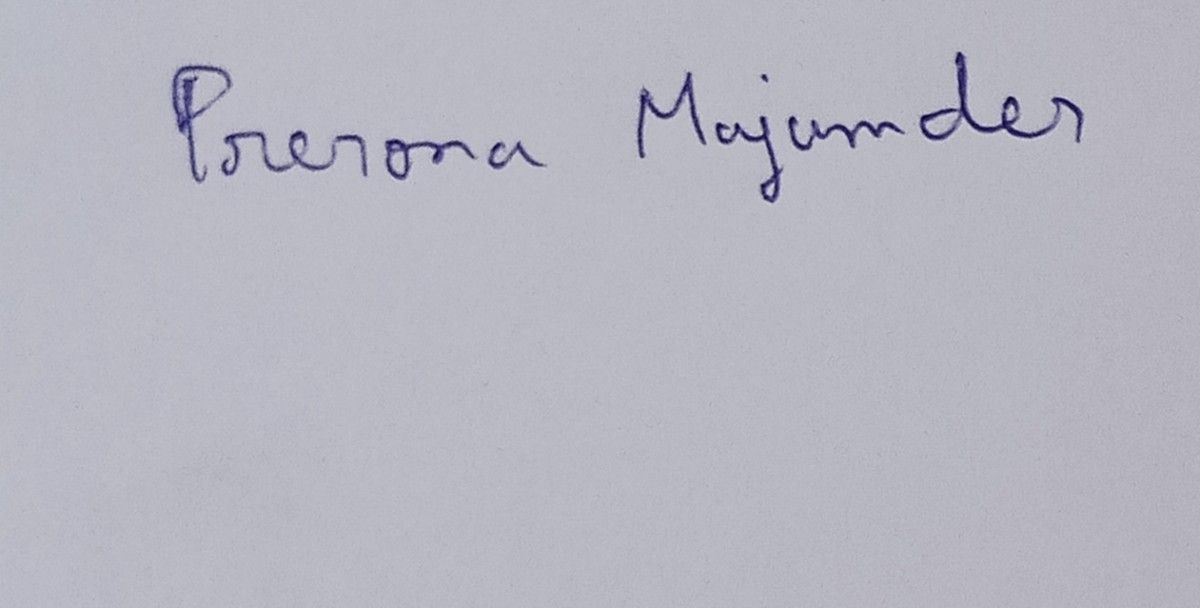 Prerona Majumder